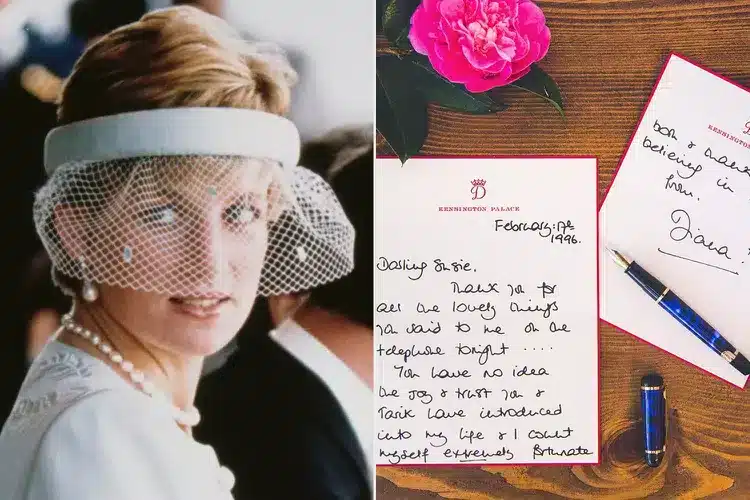 D
KENSINGTON PALACE
February: 17th
1996.
Darling Susie,
Thank you for
all the lovely things
you said to me on the
telephone tonight ....
You have no idea
the joy & trust you &
Tarik have introduced
into my life & I count
myself extremely fortunate
KENSINGTON
both & thank
believing in
him.
Diana